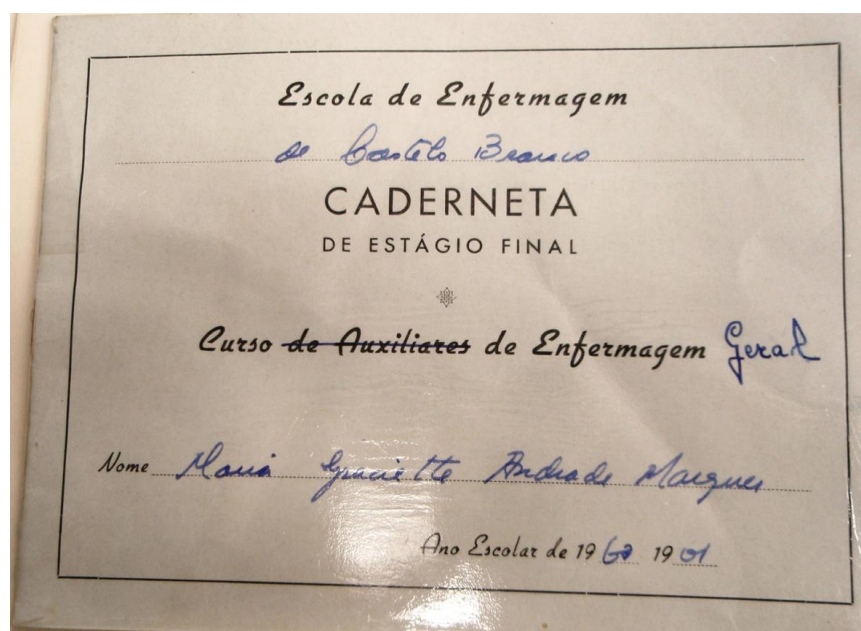 Escola de Enfermagem
de Castelo Branco
CADERNETA
DE ESTÁGIO FINAL
Curso de Auxiliares de Enfermagem Geral
Nome Maria Graciette Andrade Marques
Ano Escolar de 1960 1961